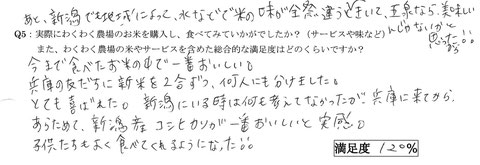 あと、新潟でも地域によって、水などで米の味が全然違うと聞いて、五泉なら、美味しい
んじゃないかと
思ったから!!
Q5：実際にわくわく農場のお米を購入し、食べてみていかがでしたか？（サービスや味など）
また、わくわく農場の米やサービスを含めた総合的な満足度はどのくらいですか？
今まで食べたお米の中で一番おいしい。
兵庫の友だちに新米を2合ずつ、何人にも分けました。
とても喜ばれた。新潟にいる時は何も考えてなかったが兵庫に来てから、
あらためて、新潟産コシヒカリが一番おいしいと実感。
子供たちもよく食べてくれるようになった!!
満足度 120%